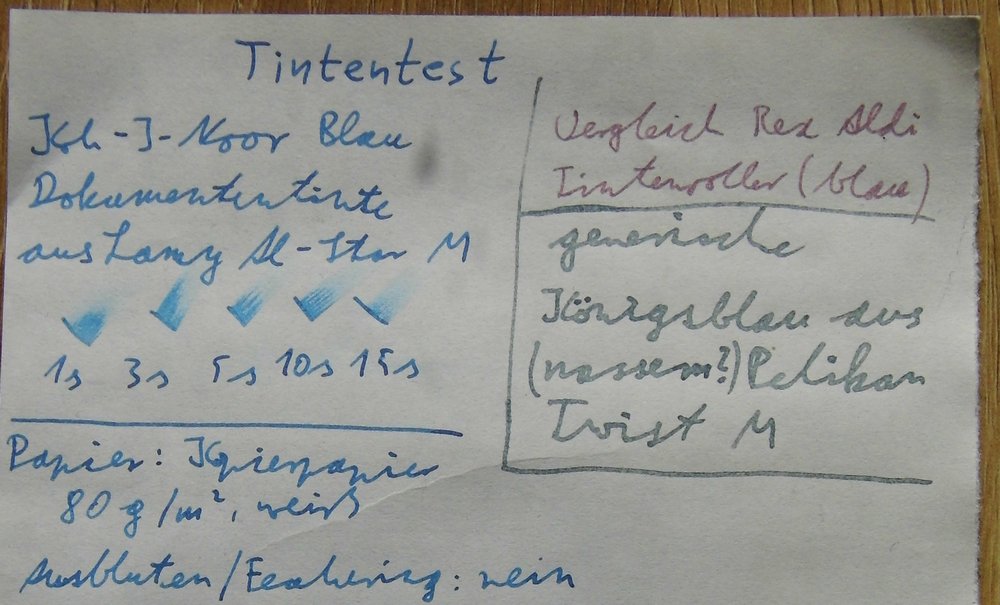 Tintentest
Koh-I-Noor Blau
Dokumententinte
aus Lamy Al-Star M
1s 3s 5s 10s 15s
Papier: Kopierpapier
80 g/m², weiß
Ausbluten/Feathering: nein
Vergleich Rex Aldi
Tintenroller (blau)
generische
Königsblau aus
(nassem?) Pelikan
Twist M